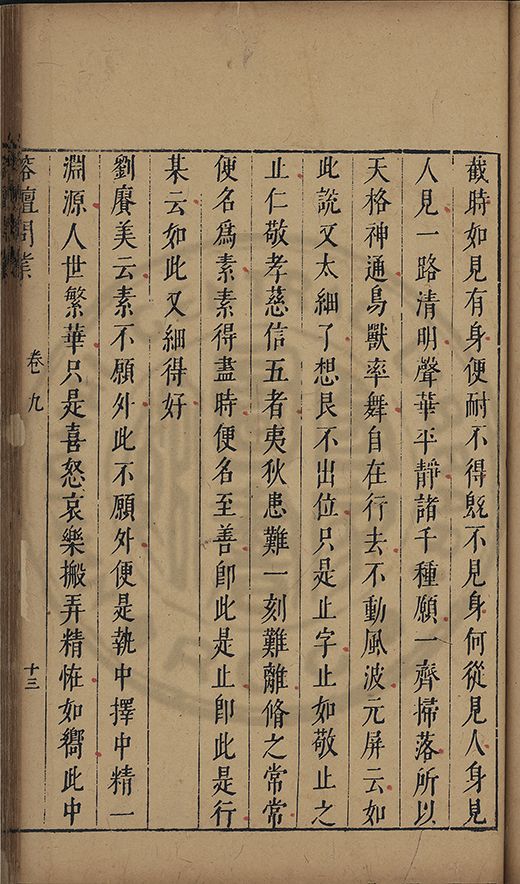 截時如見有身便耐不得既不見身何從見人身見
人見一路清明聲華平靜諸千種願一齊掃落所以
天格神通鳥獸率舞自在行去不動風波元屏云如
此說又太細了想艮不出位只是止字止如敬止之
止仁敬孝慈信五者夷狄患難一刻難離脩之常常
便名爲素素得盡時便名至善卽此是止卽此是行
某云如此又細得好
劉賡美云素不願外此不願外便是執中擇中精一
淵源人世繁華只是喜怒哀樂搬弄精恠如嚮此中
榕壇問業
卷九
十三